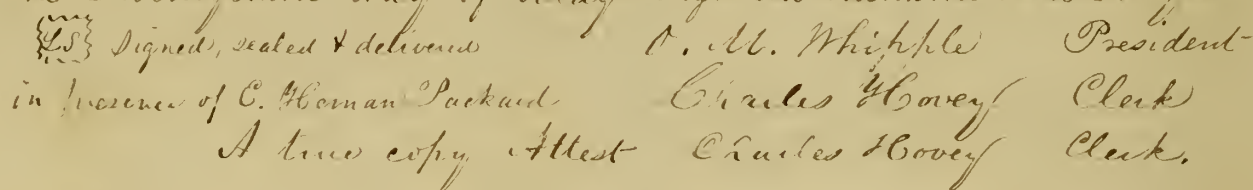 L.S. Signed, sealed & delivered O. M. Whipple President
in presence of C. Herman Packard Charles Hovey Clerk
A true copy Attest Charles Hovey Clerk.